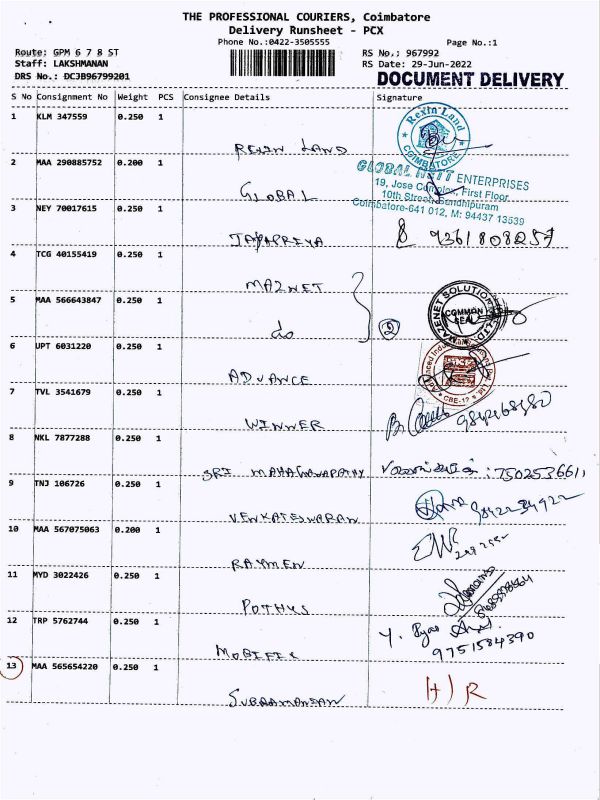 THE PROFESSIONAL COURIERS, Coimbatore
Delivery Runsheet - PCX
Phone No.:0422-3505555
Page No.:1
Route: GPM 6 7 8 ST
RS No.; 967992
Staff: LAKSHMANAN
RS Date: 29-Jun-2022
DRS No.: DCJB96799201
DOCUMENT DELIVERY
S No Consignment No Weight PCS Consignee Details Signature
1 KLM 347559 0.250 1
REXIN LAND
Rexin Land COIMBATORE
2 MAA 290885752 0.200 1
GLOBAL
GLOBAL NETT ENTERPRISES
19, Jose Complex, First Floor,
10th Street, Gandhipuram
Coimbatore-641 012, M: 94437 13539
3 NEY 70017615 0.250 1
JAYAPRIYA
9361808257
4 TCG 40155419 0.250 1
MAZNET
5 MAA 566643847 0.250 1
do
2
MAZENET SOLUTION
COMMON SEAL
6 UPT 6031220 0.250 1
ADVANCE
CBE-12
7 TVL 3541679 0.250 1
WINNER
8 NKL 7877288 0.250 1
SRI MAHAGANAPATHY
: 7502536611
9 TNJ 106726 0.250 1
VENKATESWARAN
10 MAA 567075063 0.200 1
RAYMEN
11 MYD 3022426 0.250 1
POTHYS
12 TRP 5762744 0.250 1
9751584390
13 MAA 565654220 0.250 1
SUBRAMANIAN
H/R